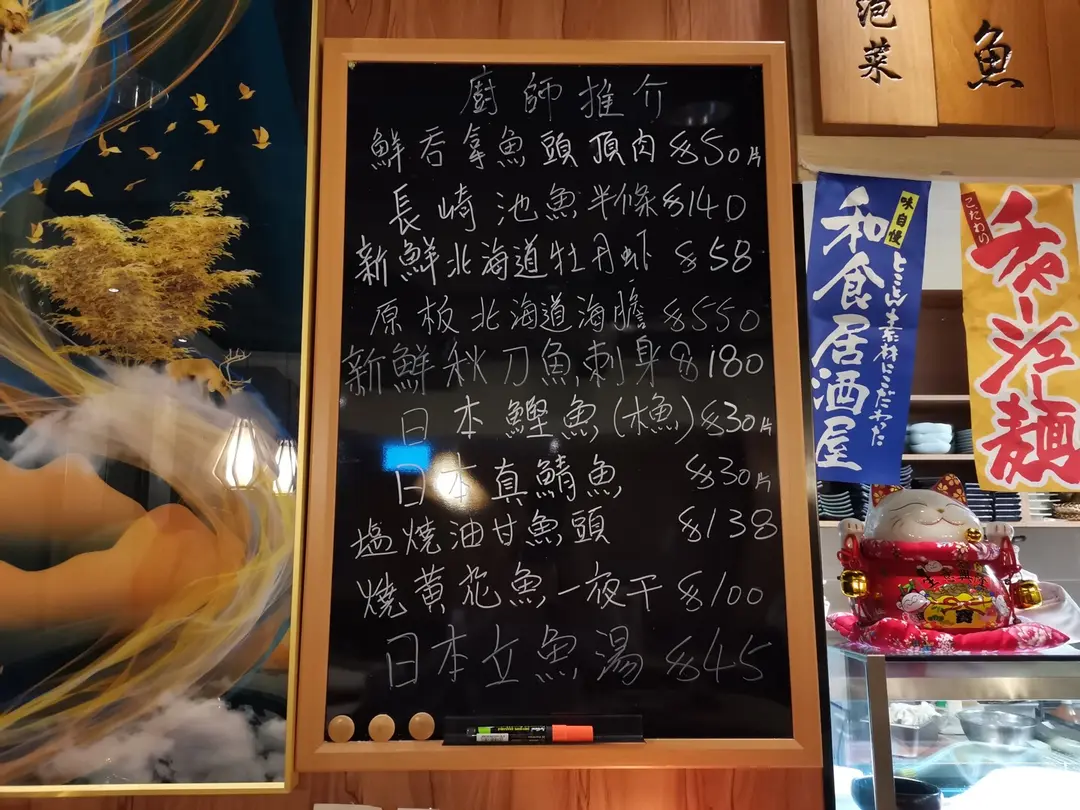 廚師推介
鮮吞拿魚頭頂肉 $50片
長崎池魚半條 $140
新鮮北海道牡丹虾 $58
原板北海道海膽 $550
新鮮秋刀魚刺身 $180
日本鰹魚(木魚) $30片
日本真鯖魚 $30片
塩燒油甘魚頭 $138
燒黃花魚一夜干 $100
日本立魚湯 $45
泡菜
魚
味自慢
和食居酒屋
とことん素材にこだわった
こだわり
チャーシュー麺